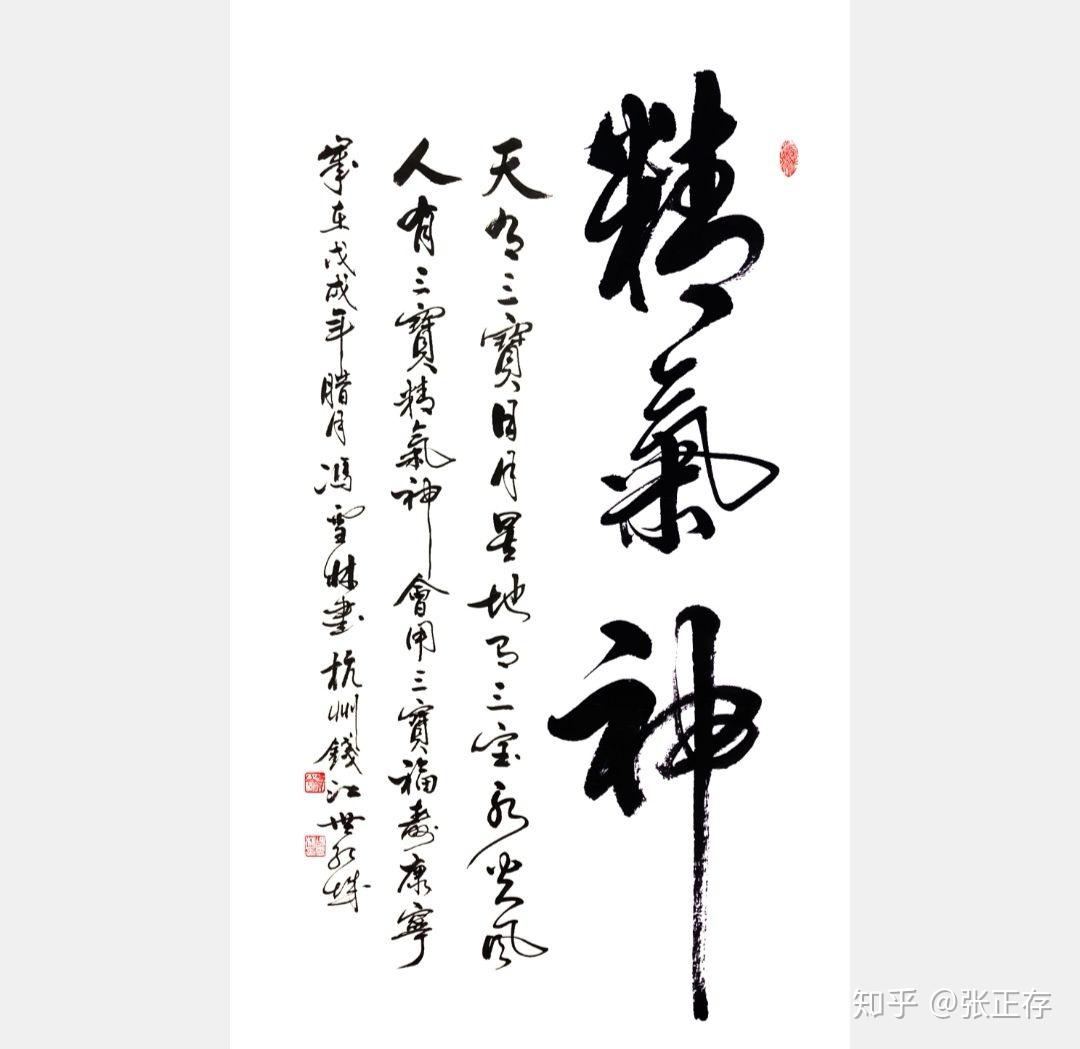 精氣神
天有三寶日月星地有三宝水火风
人有三寶精氣神會用三寶福寿康寧
歲在戊戌年腊月馮雪林書杭州錢江世紀城
知乎 @张正存